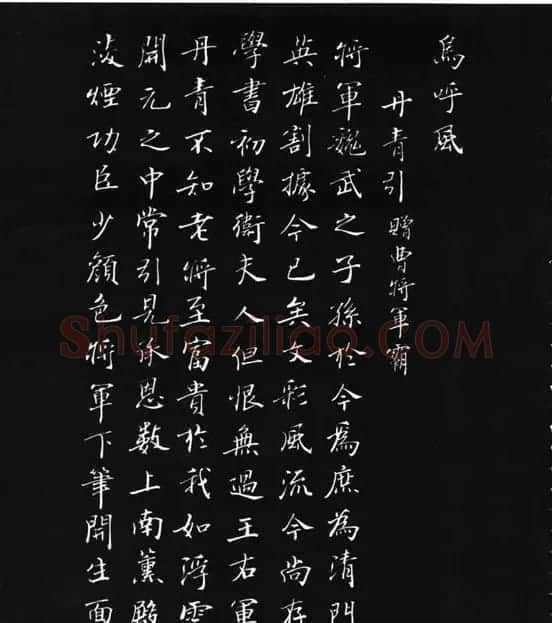 烏呼風
丹青引贈曹將軍霸
將軍魏武之子孫於今為庶為清門
英雄割據今已矣文彩風流今尚存
學書初學衛夫人但恨無過王右軍
丹青不知老將至富貴於我如浮雲
開元之中常引見承恩數上南薰殿
淩煙功臣少顏色將軍下筆開生面
Shufaziliao.COM